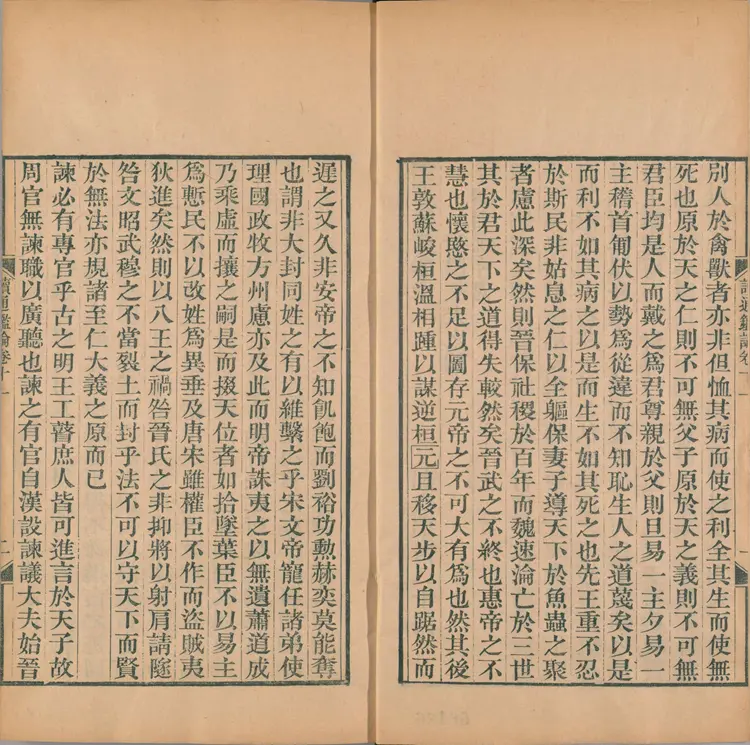 別人於禽獸者亦非但恤其病而使之利全其生而使無
死也原於天之仁則不可無父子原於天之義則不可無
君臣均是人而戴之爲君尊親於父則旦易一主夕易一
主稽首匍伏以勢爲從違而不知恥生人之道蔑矣以是
而利不如其病之以是而生不如其死之也先王重不忍
於斯民非姑息之仁以全軀保妻子導天下於魚蟲之聚
者慮此深矣然則晉保社稷於百年而魏速淪亡於三世
其於君天下之道得失較然矣晉武之不終也惠帝之不
慧也懷愍之不足以圖存元帝之不可大有爲也然其後
王敦蘇峻桓溫相踵以謀逆桓元且移天步以自踞然而
遲之又久非安帝之不知飢飽而劉裕功勳赫奕莫能奪
也謂非大封同姓之有以維繫之乎宋文帝寵任諸弟使
理國政牧方州慮亦及此而明帝誅夷之以無遺蕭道成
乃乘虛而攘之嗣是而掇天位者如拾墜葉臣不以易主
爲慙民不以改姓爲異垂及唐宋雖權臣不作而盜賊夷
狄進矣然則以八王之禍咎晉氏之非抑將以射肩請隧
咎文昭武穆之不當裂土而封乎法不可以守天下而賢
於無法亦規諸至仁大義之原而已
諫必有專官乎古之明王工瞽庶人皆可進言於天子故
周官無諫職以廣聽也諫之有官自漢設諫議大夫始晉
讀通鑑論卷十一
二